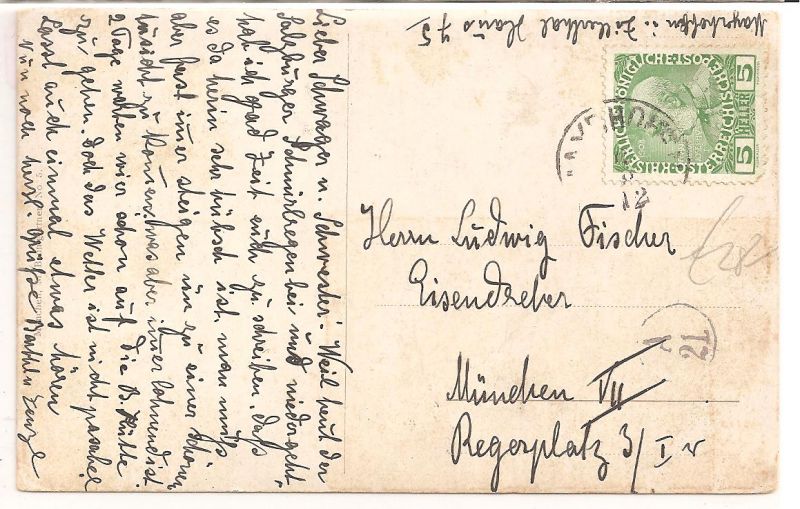 Mayrhofen i. Zillerthal Haus 75
Lieber Schwager u. Schwester! Weil heut der
Salzburger Schnürlregen bei und niedergeht
hab ich grad Zeit euch zu schreiben. daß
es da herin sehr hübsch ist. man muß
aber fast imer steigen um zu einer schönen
Aussicht zu komen. was aber imer lohnend ist
2 Tage wollten wir schon auf die B. Hütte
zu gehen. doch das Wetter ist nicht
Lasst auch einmal etwas hören
Nun noch herzl. Grüße
KAISERLICHE KÖNIGLICHE ÖSTERREICHISCHE POST
5 HELLER 5
12
Herrn Ludwig Fischer
Eisendreher
München VII
Regerplatz 3/I r
£28
A
21